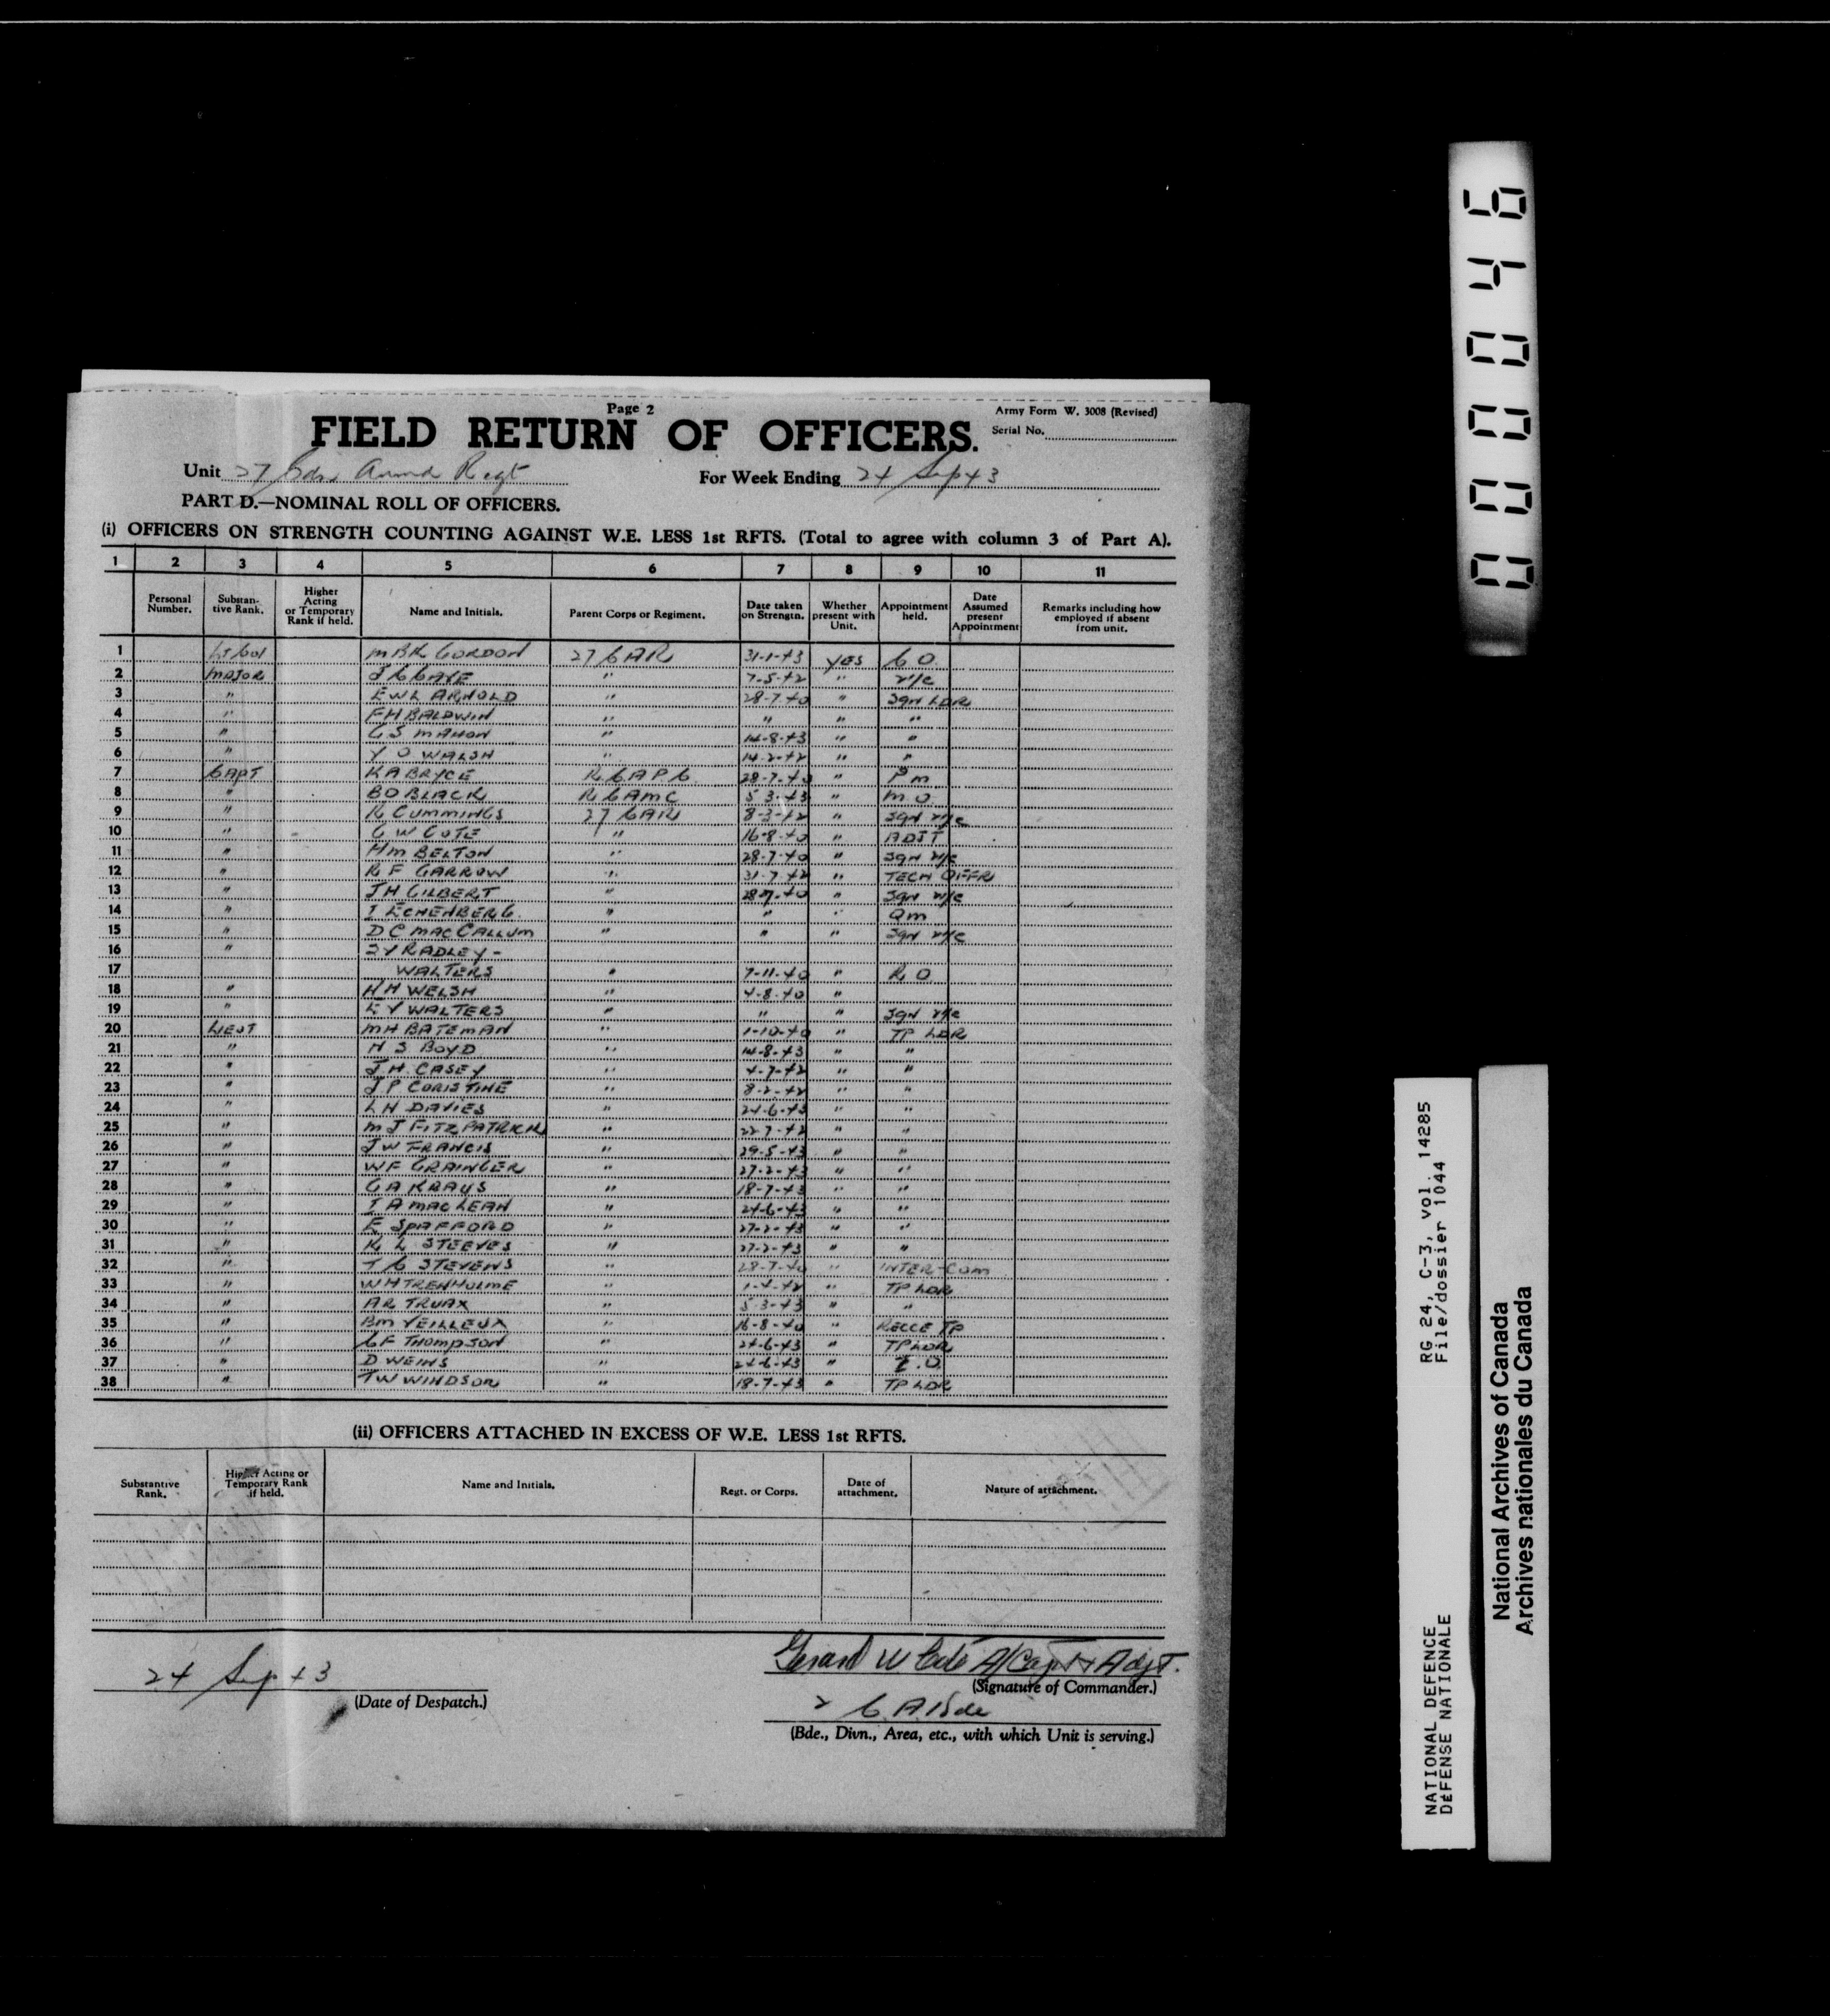 Page 2
Army Form W. 3008 (Revised)
FIELD RETURN OF OFFICERS.
Serial No.
Unit 27 Cdn Armd Regt For Week Ending 24 Sep 43
PART D.—NOMINAL ROLL OF OFFICERS.
(i) OFFICERS ON STRENGTH COUNTING AGAINST W.E. LESS 1st RFTS. (Total to agree with column 3 of Part A).
1 2 3 4 5 6 7 8 9 10 11
Personal Number. Substantive Rank. Higher Acting or Temporary Rank if held. Name and Initials. Parent Corps or Regiment. Date taken on Strength. Whether present with Unit. Appointment held. Date Assumed present Appointment Remarks including how employed if absent from unit.
1 Lt Col M B K GORDON 27 CAR 31-1-43 YES C O
2 MAJOR " 7-5-42 " 2/i/c
3 " E W L ARNOLD " 28-7-40 " SQN LDR
4 " F H BALDWIN " " " "
5 " C S MAHON " 14-8-43 " "
6 " V O WALSH " 14-2-42 " "
7 CAPT K A BRYCE R.C.A.P.C. 28-7-40 " P M
8 " B O BLACK R C A M C 5-3-43 " M O
9 " R CUMMINGS 27 CAR 8-3-42 " SQN 2/i/c
10 " G W COTE " 16-8-40 " ADJT
11 " H M BELTON " 28-7-40 " SQN 2/i/c
12 " R F GARROW " 31-7-42 " TECH OFFR
13 " J H GILBERT " 28-7-40 " SQN 2/i/c
14 " I ECHENBERG " " " QM
15 " D C MACCALLUM " " " SQN 2/i/c
16 " S V RADLEY-
17 WALTERS " 7-11-40 " R O
18 " H H WELSH " 4-8-40 "
19 " E V WALTERS " " " SQN 2/i/c
20 LIEUT M H BATEMAN " 1-10-40 " TP LDR
21 " H S BOYD " 14-8-43 " "
22 " J H CASEY " 4-7-42 " "
23 " J P CORISTINE " 8-2-42 " "
24 " L H DAVIES " 24-6-43 " "
25 " M J FITZPATRICK " 22-7-42 " "
26 " J W FRANCIS " 29-5-43 " "
27 " W F GRAINGER " 27-2-43 " "
28 " G A KRAUS " 18-7-43 " "
29 " I A MACLEAN " 24-6-43 " "
30 " E SPAFFORD " 27-2-43 " "
31 " K L STEEVES " 27-2-43 " "
32 " T C STEVENS " 28-7-40 " INTER-COM
33 " W H TRENHOLME " 1-4-42 " TP LDR
34 " A R TRUAX " 5-3-43 " "
35 " B M VEILLEUX " 16-8-40 " RECCE TP
36 " C F THOMPSON " 24-6-43 " TP LDR
37 " D WEINS " 24-6-43 " I.O.
38 " T W WINDSOR " 18-7-43 " TP LDR
(ii) OFFICERS ATTACHED IN EXCESS OF W.E. LESS 1st RFTS.
Substantive Rank. Higher Acting or Temporary Rank if held. Name and Initials. Regt. or Corps. Date of attachment. Nature of attachment.
24 Sep 43
(Date of Despatch.)
Gerard W Cote A/Capt & Adjt.
(Signature of Commander.)
2 C.A. Bde
(Bde., Divn., Area, etc., with which Unit is serving.)
000046
RG 24, C-3, vol. 14285
File/dossier 1044
NATIONAL DEFENCE
DÉFENSE NATIONALE
National Archives of Canada
Archives nationales du Canada